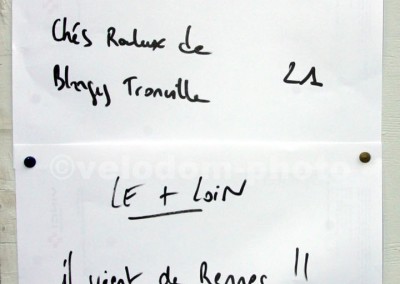 Chés Roulux de
Blangy Tronville 21
©velodom-photo
LE + LOIN
il vient de Rennes !!